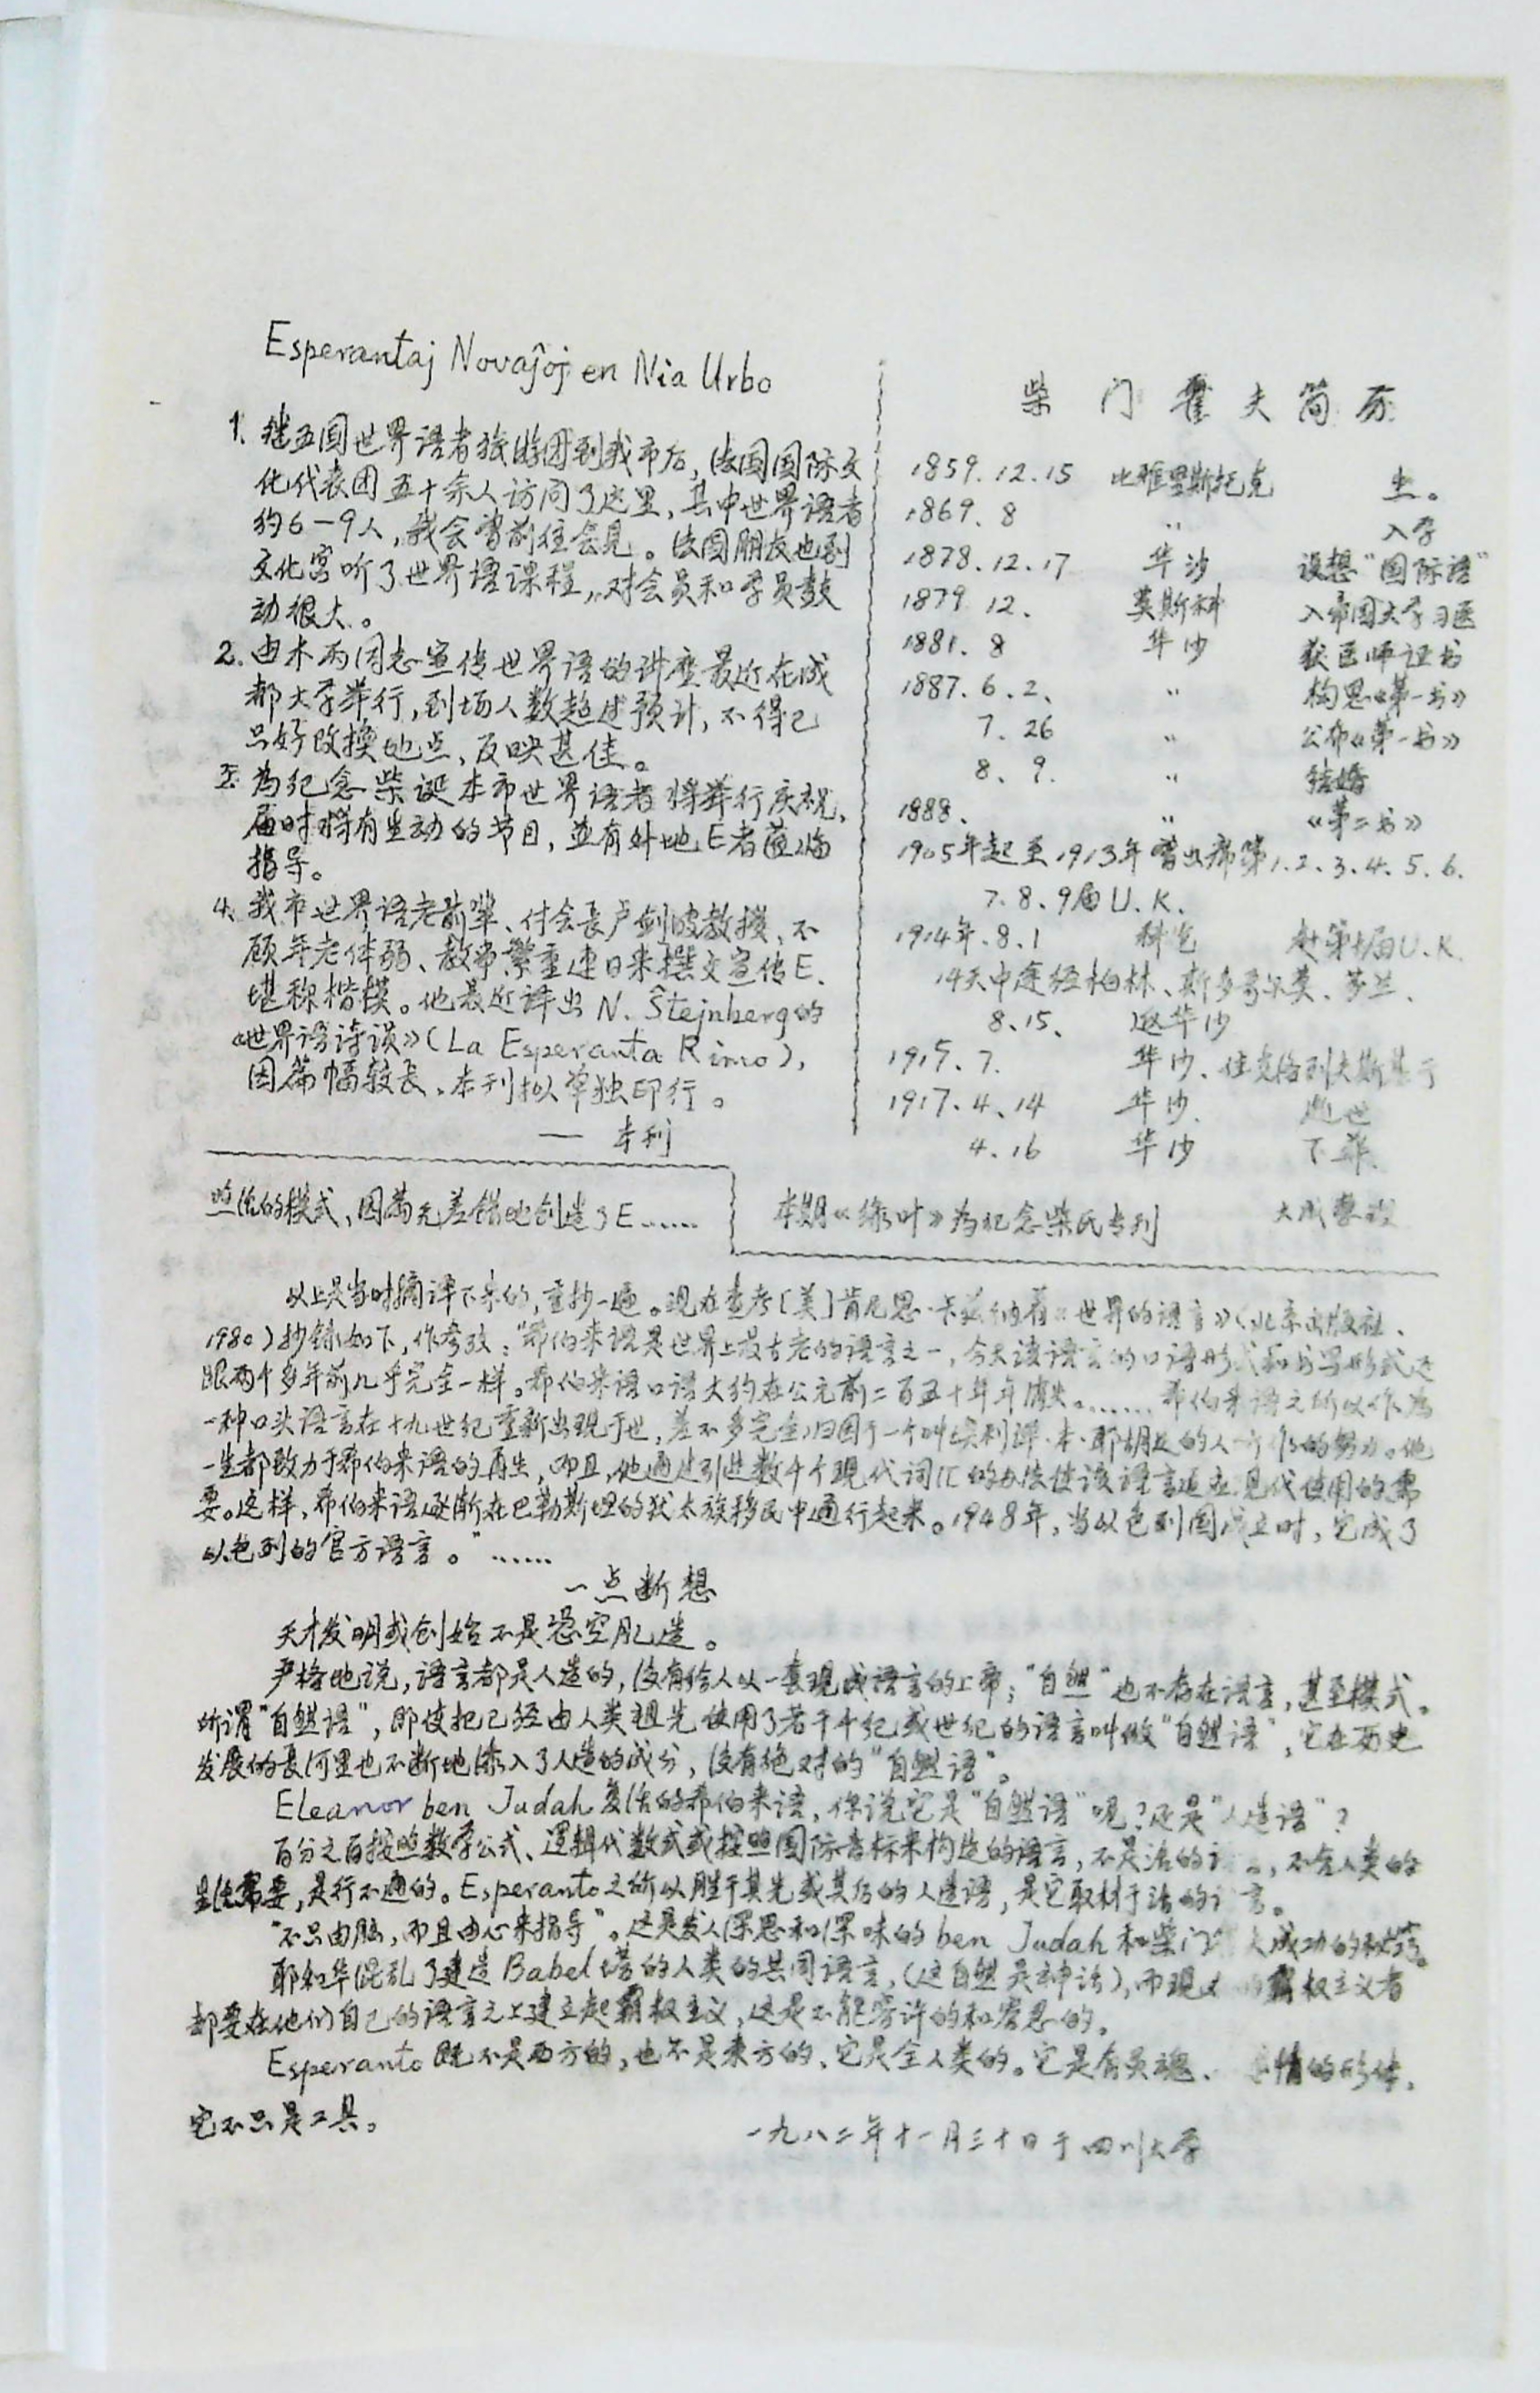 Esperantaj Novaĵoj en Nia Urbo
1. 继五国世界语者旅游团到我市后,法国国际文
化代表团五十余人访问了这里,其中世界语者
约6-9人,我会曾前往会见。法国朋友也到
文化宫听了世界语课程,对会员和学员鼓
动很大。
2. 由木丙同志宣传世界语的讲座最近在成
都大学举行,到场人数超过预计,不得已
只好改换地点,反映甚佳。
3. 为纪念柴诞本市世界语者将举行庆祝,
届时将有生动的节目,並有外地E者莅临
指导。
4. 我市世界语老前辈、付会长卢剑波教授,不
顾年老体弱、教学繁重连日来撰文宣传E.
堪称楷模。他最近译出 N. Ŝtejnberg的
《世界语诗误》(La Esperanta Rimo),
因篇幅较长,本刊拟单独印行。
— 本刊
柴门霍夫简历
1859.12.15 比雅里斯托克 生。
1869.8 〃 入学
1878.12.17 华沙 设想“国际语”
1879 12. 莫斯科 入帝国大学习医
1881.8 华沙 获医师证书
1887.6.2、 〃 构思《第一书》
7.26 〃 公布《第一书》
8、9. 〃 结婚
1888、 〃 《第二书》
1905年起至1913年曾出席第1.2.3.4.5.6.
7.8.9届U.K.
1914年.8.1 科 赴第十届U.K.
14天中途经柏林、斯多哥尔莫、芬兰、
8、15、 返华沙
1915.7. 华沙、住克洛列夫斯基
1917.4.14 华沙. 逝世
4、16 华沙 下葬.
大成整理
照活的模式、因而无差错地创造了E……
本期《绿叶》为纪念柴氏专刊
以上是当时摘译下来的,重抄一遍。现在查考[美]肯尼思·卡兹纳着《世界的语言》(北京出版社、
1980)抄録如下,作参攷:“希伯来语是世界上最古老的语言之一,今天该语言的口语形式和书写形式还
跟两个多年前几乎完全一样。希伯来语口语大约在公元前二百五十年年消失。……希伯来语之所以作为
一种口头语言在十九世纪重新出现于世,差不多完全归因于一个叫埃利泽·本·耶胡达的人一个的努力。他
一生都致力于希伯来语的再生,而且,他通过引进数千个现代词汇的办法使该语言适应现代使用的需
要。这样,希伯来语逐渐在巴勒斯坦的犹太族移民中通行起来。1948年,当以色列国成立时,它成了
以色列的官方语言。”……
一点断想
天才发明或创始不是憑空乱造。
严格地说,语言都是人造的,没有给人以一套现成语言的上帝;“自然”也不存在语言,甚至模式。
所谓“自然语”,即使把已经由人类祖先使用了若干年纪或世纪的语言叫做“自然语”,它在历史
发展的長河里也不断地添入了人造的成分,没有绝对的“自然语”。
Eleanor ben Judah复活的希伯来语,你说它是“自然语”呢?还是“人造语”?
百分之百按照数学公式、逻辑代数式或按照国际音标来构造的语言,不是活的,不合人类的
生活需要,是行不通的。Esperanto之所以胜于其先或其后的人造语,是它取材于活的言。
“不只由脑,而且由心来指导”。这是发人深思和深味的 ben Judah 和柴门成功的秘诀。
耶和华混乱了建造Babel塔的人类的共同语言,(这自然是神话),而现霸权主义者
都要在他们自己的语言之上建立起霸权主义,这是不能容许的和容忍的。
Esperanto既不是西方的,也不是东方的、它是全人类的。它是有灵魂、情的形体,
它不只是工具。
一九八二年十一月三十日于四川大学